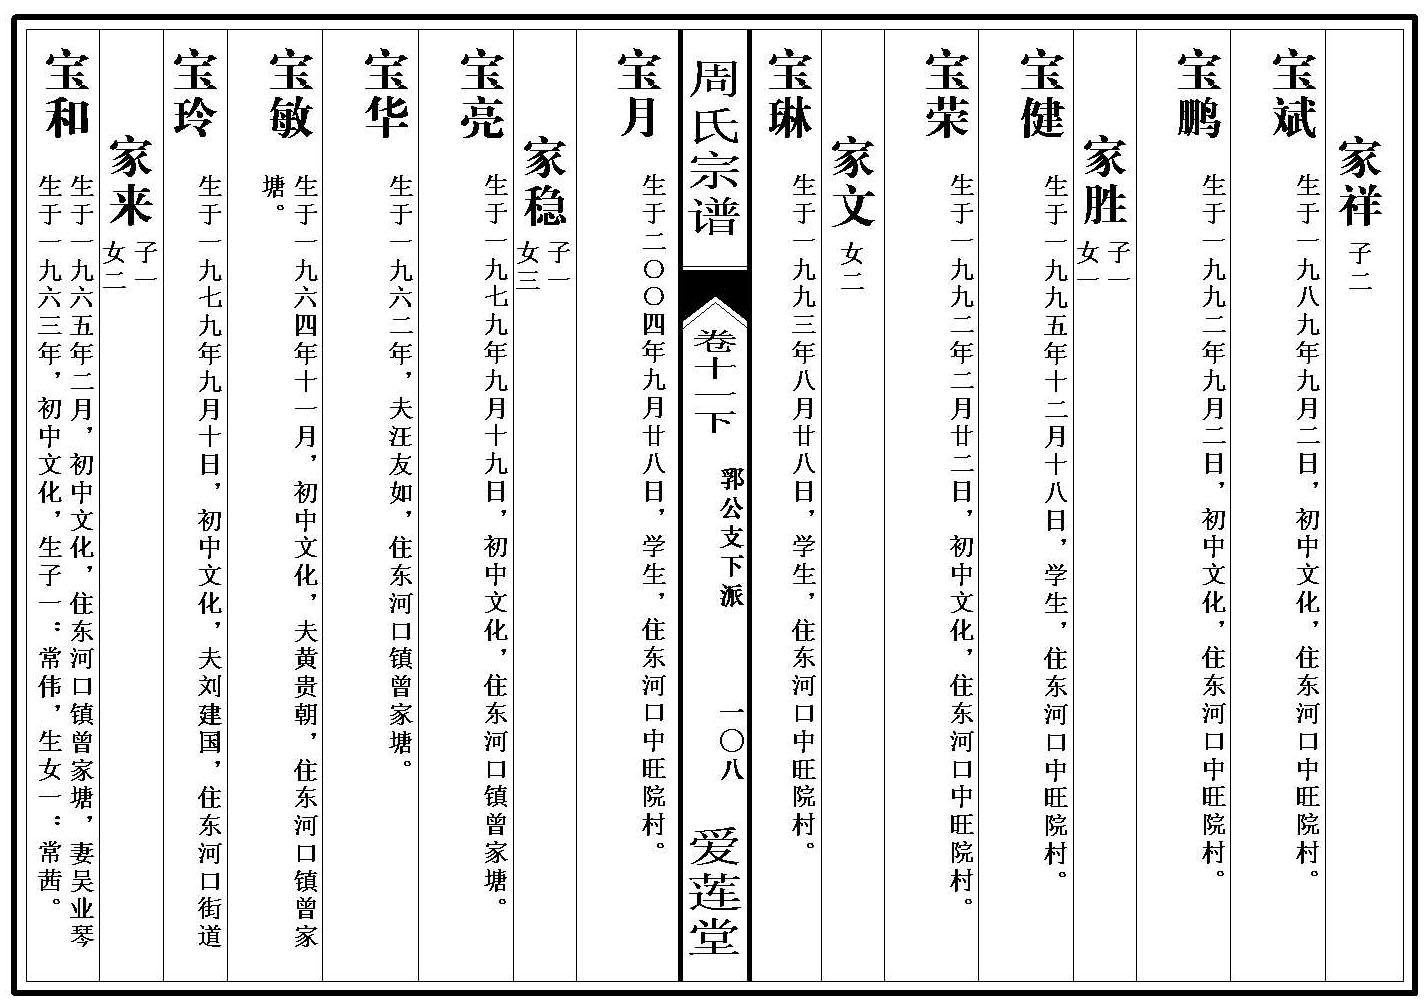 家祥 子二
宝斌 生于一九八九年九月二日，初中文化，住东河口中旺院村。
宝鹏 生于一九九二年九月二日，初中文化，住东河口中旺院村。
家胜 子一
女一
宝健 生于一九九五年十二月十八日，学生，住东河口中旺院村。
宝荣 生于一九九二年二月廿二日，初中文化，住东河口中旺院村。
家文 女二
宝琳 生于一九九三年八月廿八日，学生，住东河口中旺院村。
周氏宗谱 卷十二下 郛公支下派 一〇八 爱莲堂
宝月 生于二〇〇四年九月廿八日，学生，住东河口中旺院村。
家稳 子一
女三
宝亮 生于一九七九年九月十九日，初中文化，住东河口镇曾家塘。
宝华 生于一九六二年，夫汪友如，住东河口镇曾家塘。
宝敏 生于一九六四年十一月，初中文化，夫黄贵朝，住东河口镇曾家
塘。
宝玲 生于一九七九年九月十日，初中文化，夫刘建国，住东河口街道
家来 子一
女二
宝和 生于一九六五年二月，初中文化，住东河口镇曾家塘，妻吴业琴
生于一九六三年，初中文化，生子一：常伟，生女一：常茜。